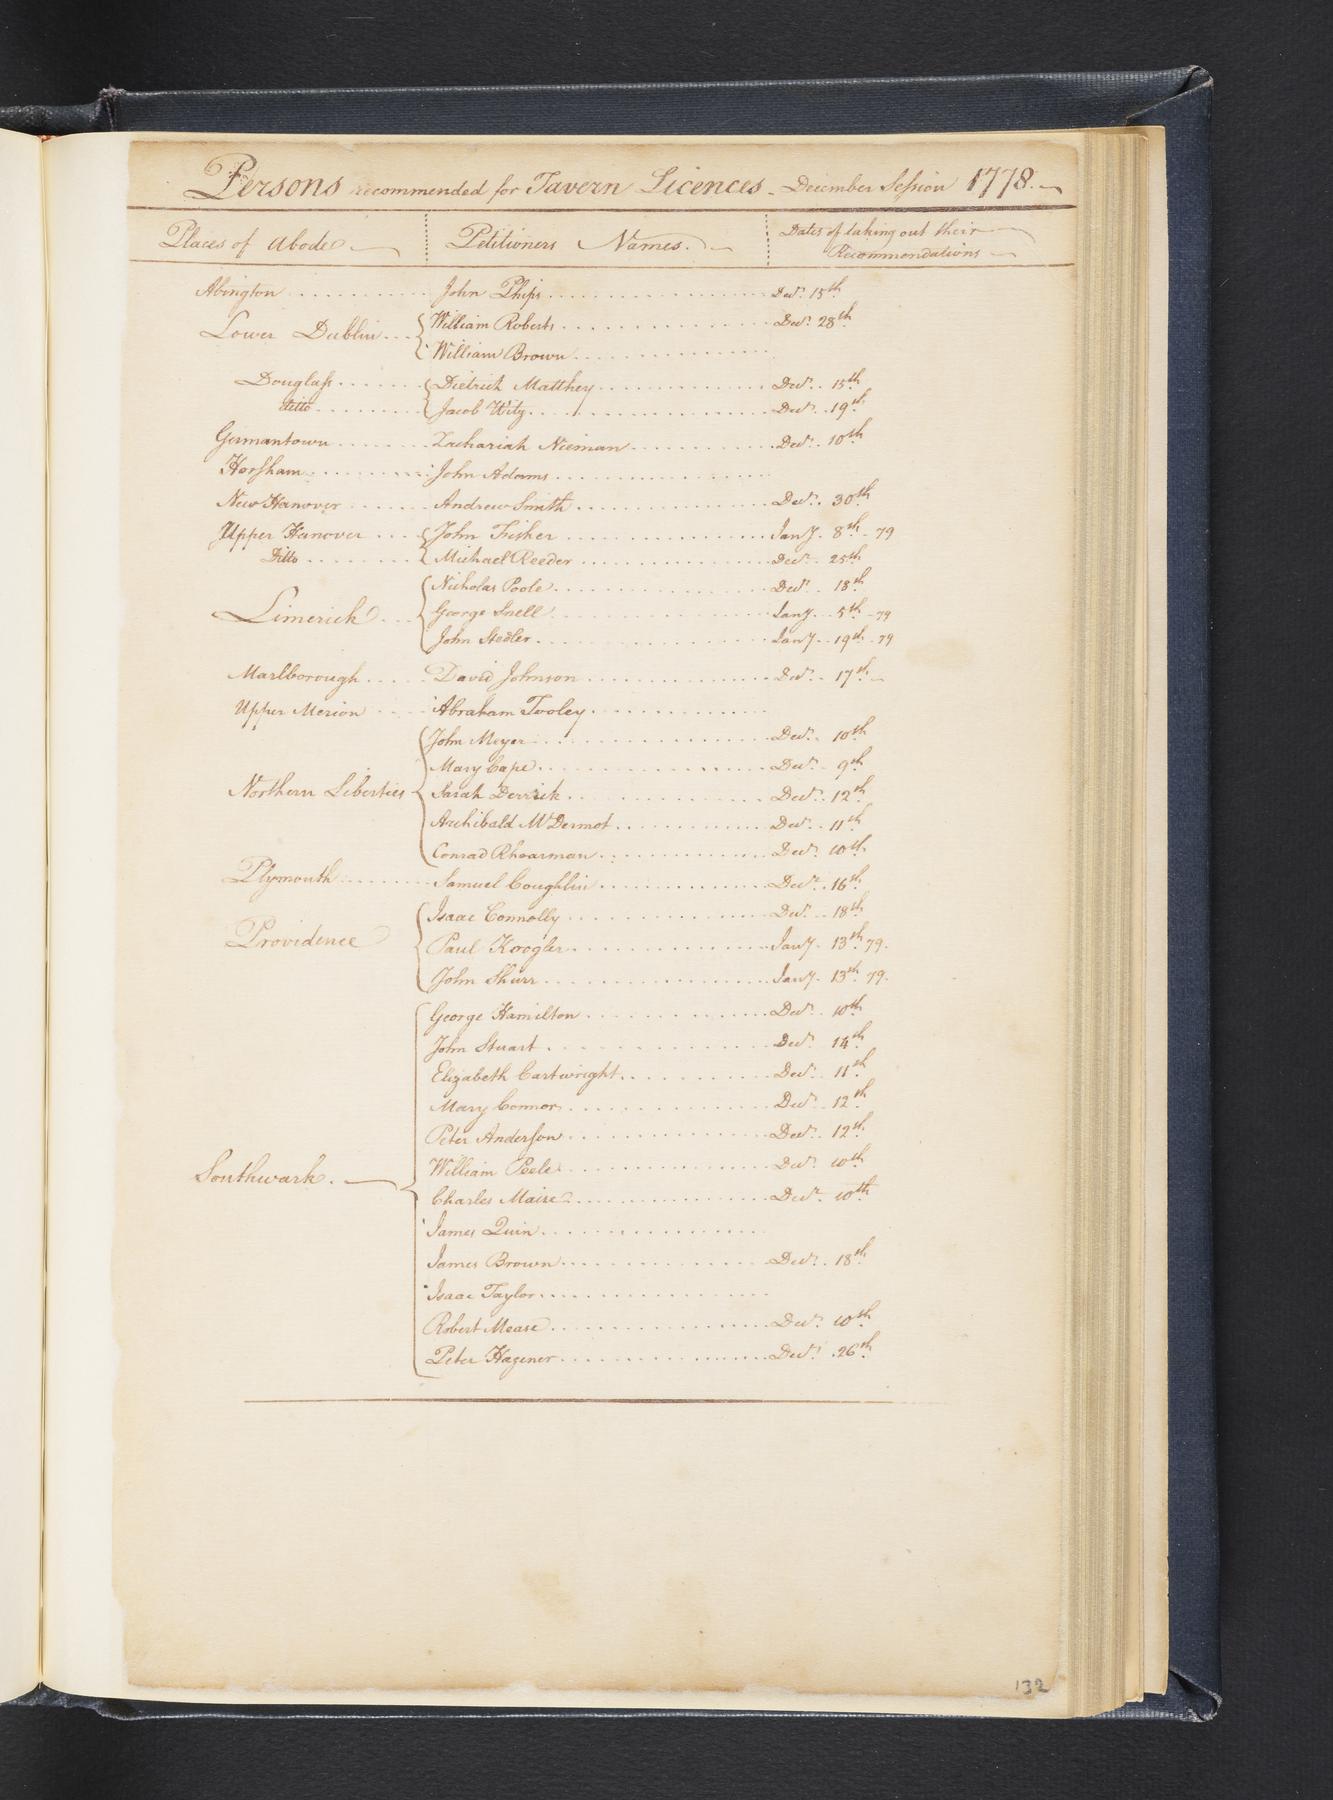 Persons recommended for Tavern Licences - December Session 1778.
Places of Abode Petitioners Names. Dates of taking out their
Recommendations
Abington John Phips Decr. 15th
Lower Dublin William Roberts Decr. 28th
William Brown
Douglass Dietrich Matthey Decr. 15th
ditto Jacob Witz Decr. 19th
Germantown Zachariah Nieman Decr. 10th
Horsham John Adams
New Hanover Andrew Smith Decr. 30th
Upper Hanover John Fisher Jany. 8th - 79
Ditto Michael Reeder Decr. 25th
Nicholas Poole Decr. 18th
Limerick George Snell Jany. 5th - 79
John Stedler Jany. 19th - 79
Marlborough David Johnson Decr. 17th
Upper Merion Abraham Tooley
John Meyer Decr. 10th
Mary Cape Decr. 9th
Northern Liberties Sarah Derrick Decr. 12th
Archibald McDermot Decr. 11th
Conrad Rhearman Decr. 10th
Plymouth Samuel Coughlin Decr. 16th
Isaac Connolly Decr. 18th
Providence Paul Koogler Jany. 13th 79.
John Shurr Jany. 13th 79.
George Hamilton Decr. 10th
John Stuart Decr. 14th
Elizabeth Cartwright Decr. 11th
Mary Connor Decr. 12th
Peter Anderson Decr. 12th
William Peele Decr. 10th
Southwark. Charles Maise Decr. 10th
James Quin
James Brown Decr. 18th
Isaac Taylor
Robert Mease Decr. 10th
Peter Hagener Decr. 26th
132